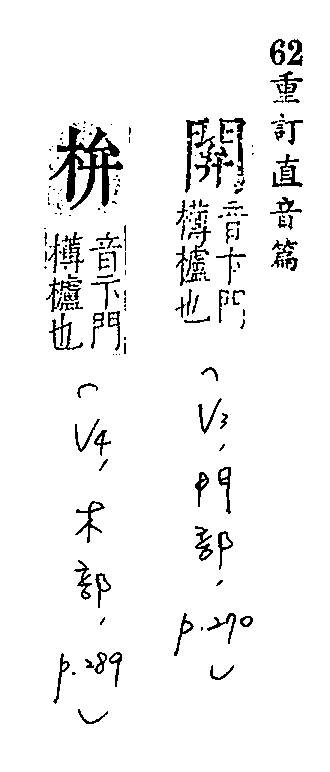 62重訂直音篇
閞
音卞門
欂櫨也
(V3, 門部, p.270)
栟
音卞門
欂櫨也
(V4, 木部, p.289)